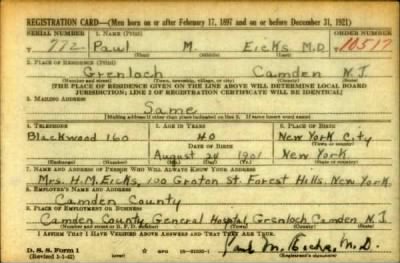 REGISTRATION CARD—(Men born on or after February 17, 1897 and on or before December 31, 1921)
SERIAL NUMBER 1. NAME (Print) ORDER NUMBER
T 772 Paul M. Eicks M.D. T 10517
(First) (Middle) (Last)
2. PLACE OF RESIDENCE (Print)
Grenloch Camden N.J.
(Number and street) (Town, township, village, or city) (County) (State)
[THE PLACE OF RESIDENCE GIVEN ON THE LINE ABOVE WILL DETERMINE LOCAL BOARD
JURISDICTION; LINE 2 OF REGISTRATION CERTIFICATE WILL BE IDENTICAL]
3. MAILING ADDRESS
Same
[Mailing address if other than place indicated on line 2. If same insert word same]
4. TELEPHONE 5. AGE IN YEARS 6. PLACE OF BIRTH
Blackwood 160 40 New York City
DATE OF BIRTH (Town or county)
August 24 1901 New York
(Exchange) (Number) (Mo.) (Day) (Yr.) (State or country)
7. NAME AND ADDRESS OF PERSON WHO WILL ALWAYS KNOW YOUR ADDRESS
Mrs. H.M. Eicks, 100 Groton St. Forest Hills, New York
8. EMPLOYER'S NAME AND ADDRESS
Camden County
9. PLACE OF EMPLOYMENT OR BUSINESS
Camden County General Hospital Grenloch Camden N.J.
(Number and street or R. F. D. number) (Town) (County) (State)
I AFFIRM THAT I HAVE VERIFIED ABOVE ANSWERS AND THAT THEY ARE TRUE.
D. S. S. Form 1
(Revised 1-1-42) (over) Paul M. Eicks, M.D.